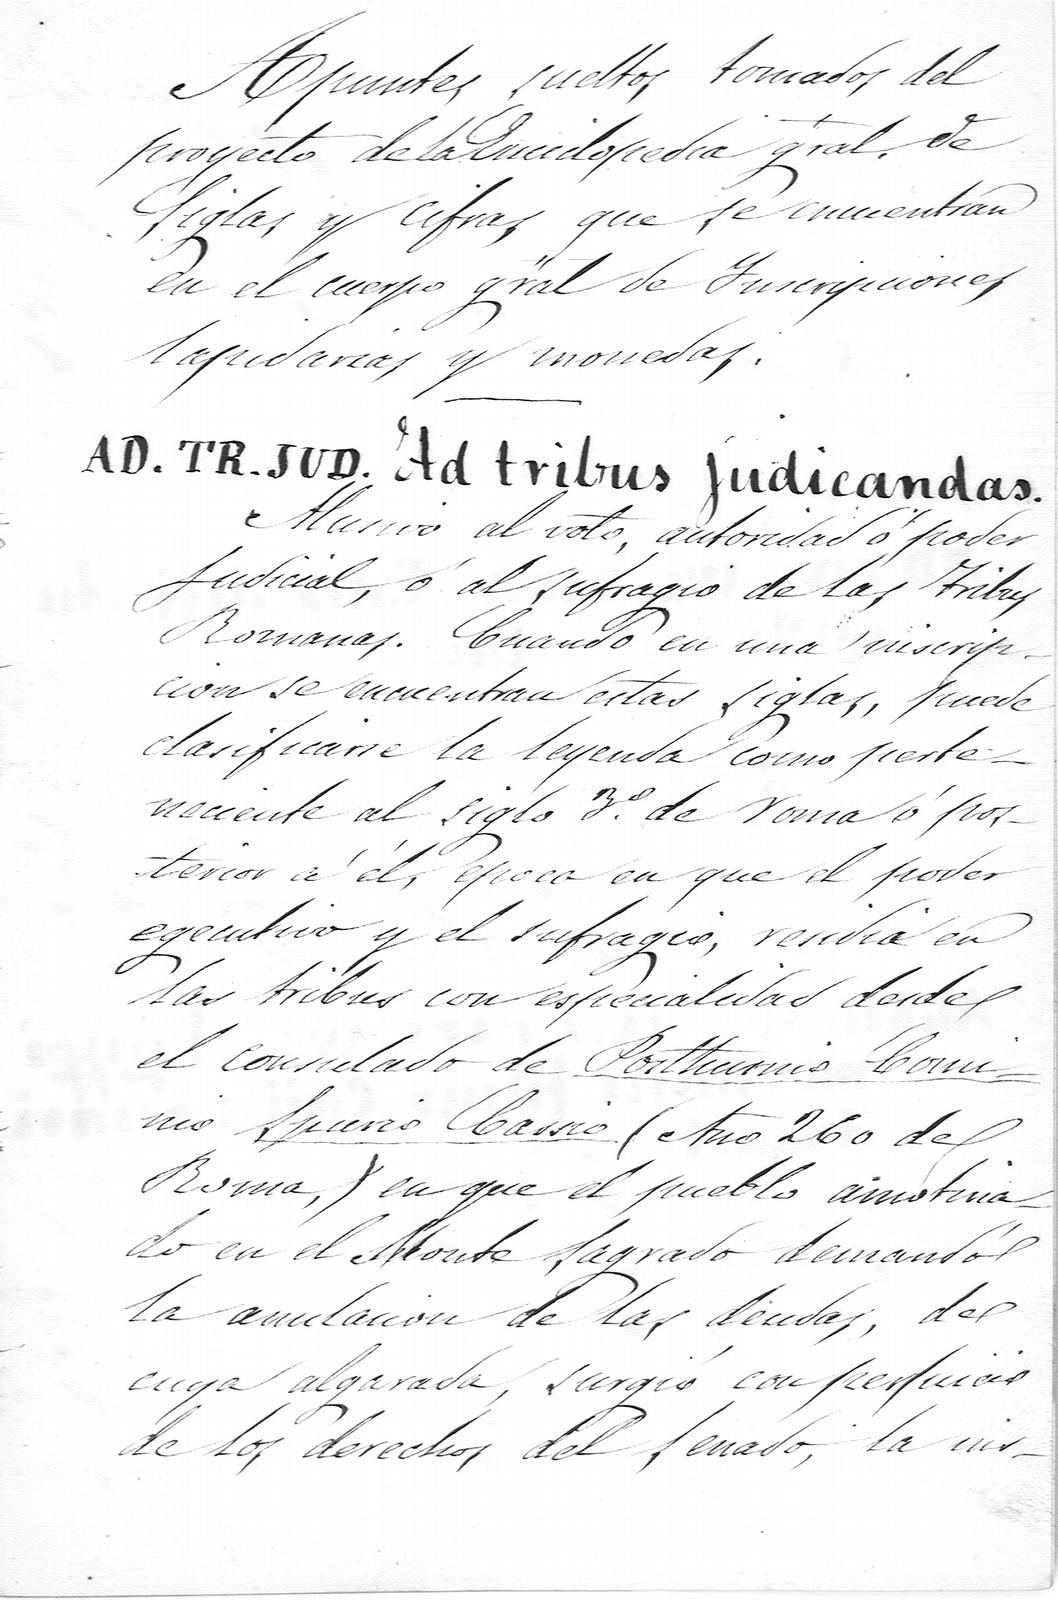 Apuntes sueltos tomados del
proyecto de la Enciclopedia gral. de
Siglas y cifras que se encuentran
en el cuerpo gral de Inscripciones
lapidarias y monedas.
AD. TR. JUD. Ad tribus judicandas.
Alusivo al voto, autoridad ó poder
Judicial, ó al sufragio de las Tribus
Romanas. Cuando en una inscrip-
cion se encuentran estas siglas, puede
clasificarse la leyenda como perte-
neciente al siglo 3º. de roma ó pos-
terior á él, epoca en que el poder
egecutivo y el sufragio, residia en
las tribus con especialidad desde
el consulado de Posthumio Comi-
nio Spurio Cassio (Año 260 de
Roma,) en que el pueblo amotina-
do en el Monte Sagrado demandó
la anulacion de las deudas, de
cuya algarada, surgió con perjuicio
de los derechos del Senado, la ins-